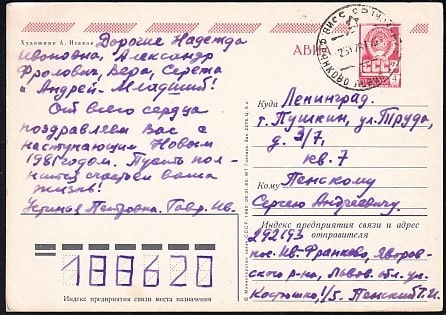 Художник А. Исаков
Дорогие Надежда
Ивановна, Александр
Фролович, Вера, Сережа
и Андрей-Младший!
От всего сердца
поздравляем Вас с
наступающим Новым
1981 годом. Пусть пол-
нится счастьем ваша
жизнь!
Устинья Петровна. Гавр. Ив.
188620
Индекс предприятия связи места назначения
АВИА
СССР
4
Куда Ленинград.
г. Пушкин, ул. Труда,
д. 3/7,
кв. 7
Кому Пенскому
Сергею Андреевичу
Индекс предприятия связи и адрес
отправителя
292193
пос. Ив-Франково, Яворов-
ского р-на, Львов. обл. ул.
Костюшко, 1/5. Пенский Г. И.